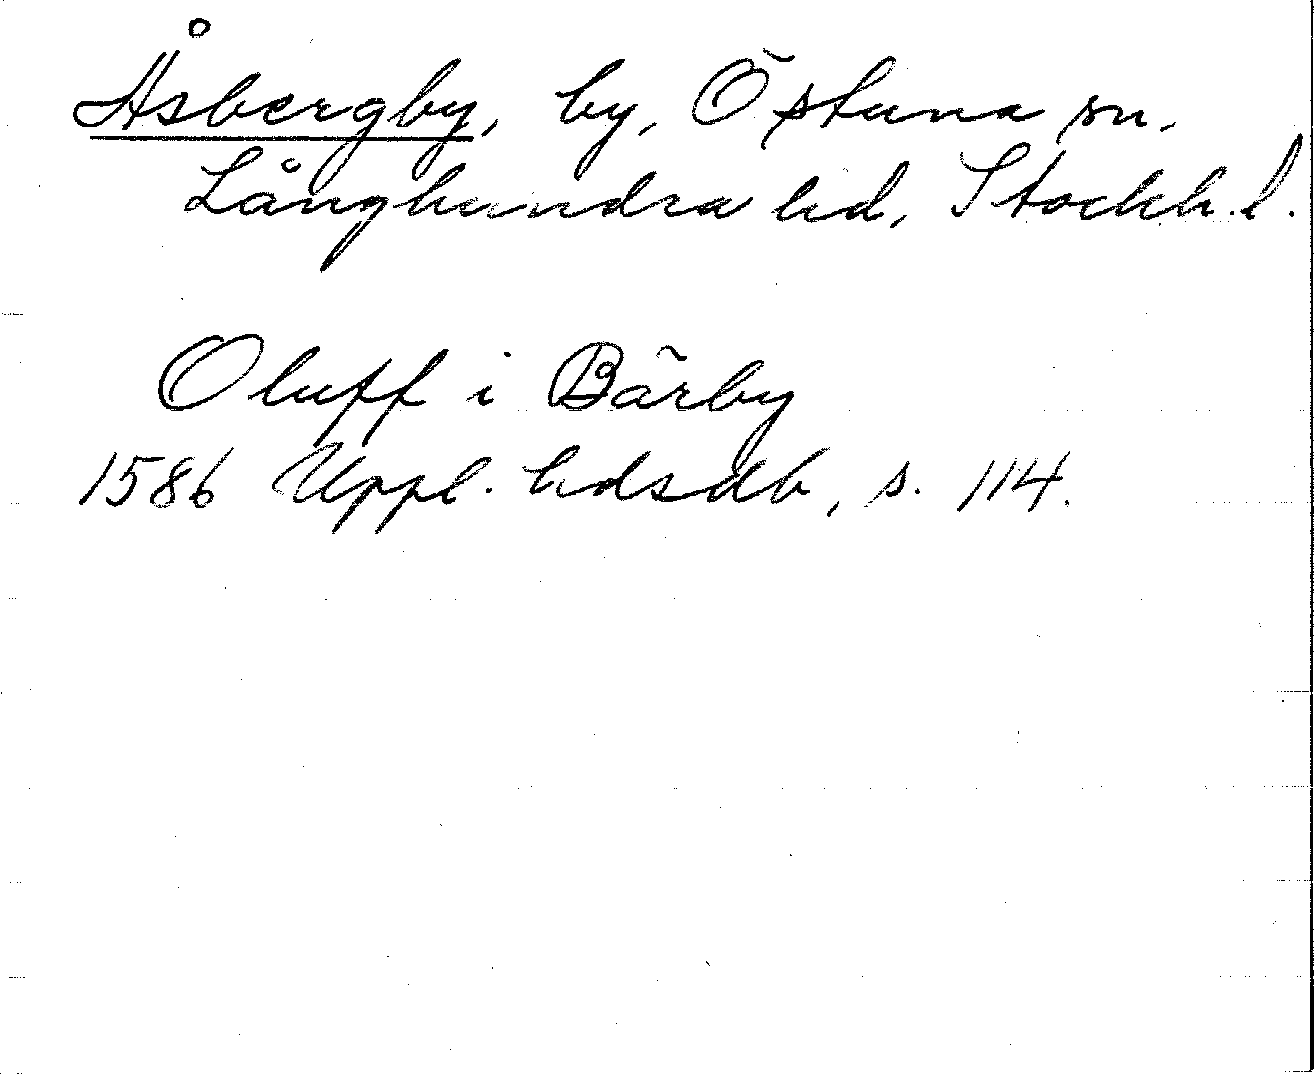 Åsbergby, by, Östuna sn.
Långhundra hd, Stockh. l.
Oluff i Bärby
1586 Uppl. hdsdb, s. 114.